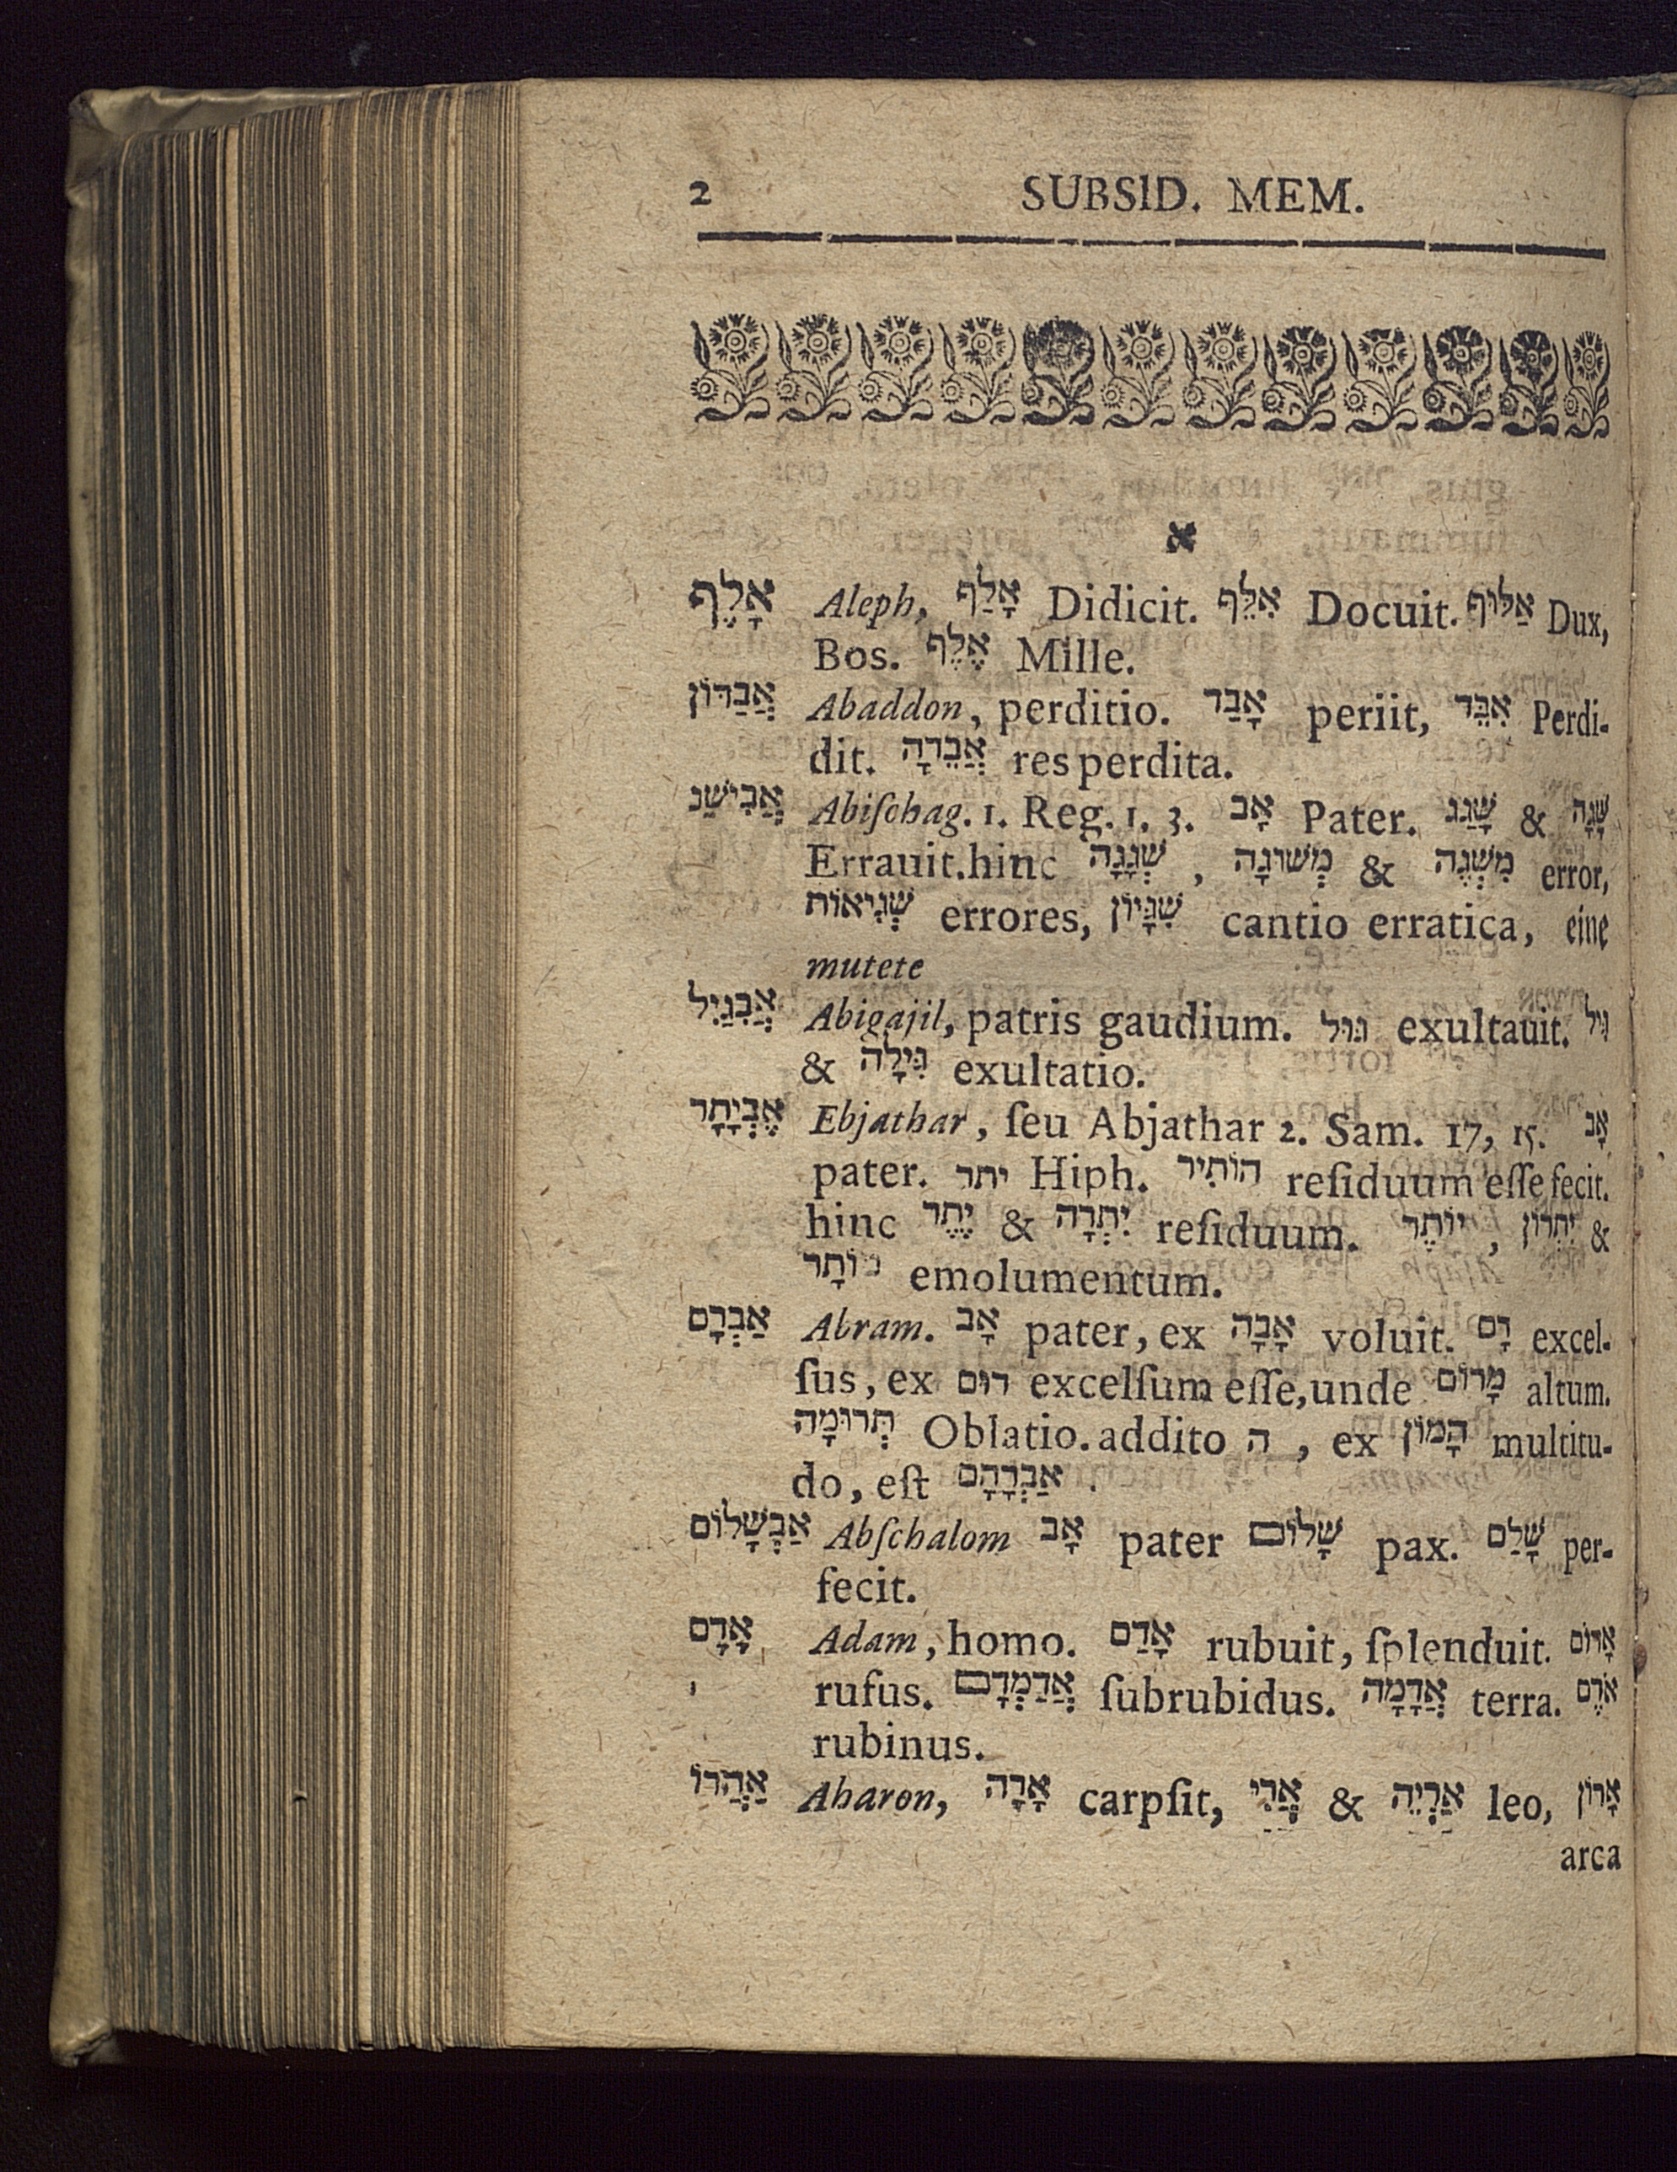 2 SUBSID. MEM.
א
אָלֶף Aleph, אָלַף Didicit. אִלֵּף Docuit. אַלּוּף Dux,
Bos. אֶלֶף Mille.
אֲבַדּוֹן Abaddon, perditio. אָבַד periit, אִבֵּד Perdi-
dit. אֲבֵרָה res perdita.
אֲבִישַׁג Abiſchag. 1. Reg. 1, 3. אָב Pater. שָׁגַג & שָׁגָה
Errauit. hinc שְׁגָגָה, מְשׁוּגָה & מִשְׁגֶה error,
שְׁגִיאוֹת errores, שִׁגָּיוֹן cantio erratica, eine
mutete
אֲבִגַיִל Abigajil, patris gaudium. גּוּל exultauit. גִּיל
& גִּילָה exultatio.
אֶבְיָתָר Ebjathar, ſeu Abjathar 2. Sam. 17, 15. אָב
pater. יתר Hiph. הוֹתִיר reſiduum eſſe fecit.
hinc יֶתֶר & יִתְרָה reſiduum. יוֹתֶר, יִתְרוֹן &
וֹתָר emolumentum.
אַבְרָם Abram. אָב pater, ex אָבָה voluit. רָם excel-
ſus, ex רוּם excelſum eſſe, unde מָרוֹם altum.
תְּרוּמָה Oblatio. addito ה, ex הָמוֹן multitu-
do, eſt אַבְרָהָם.
אַבְשָׁלוֹם Abſchalom אָב pater שָׁלוֹם pax. שָׁלַם per-
fecit.
אָדָם Adam, homo. אָדַם rubuit, ſplenduit. אָדוֹם
rufus. אֲדַמְדָם ſubrubidus. אֲדָמָה terra. אֹדֶם
rubinus.
אַהֲרוֹ Aharon, אָרָה carpſit, אֲרִי & אַרְיֵה leo, אָרוֹן
arca